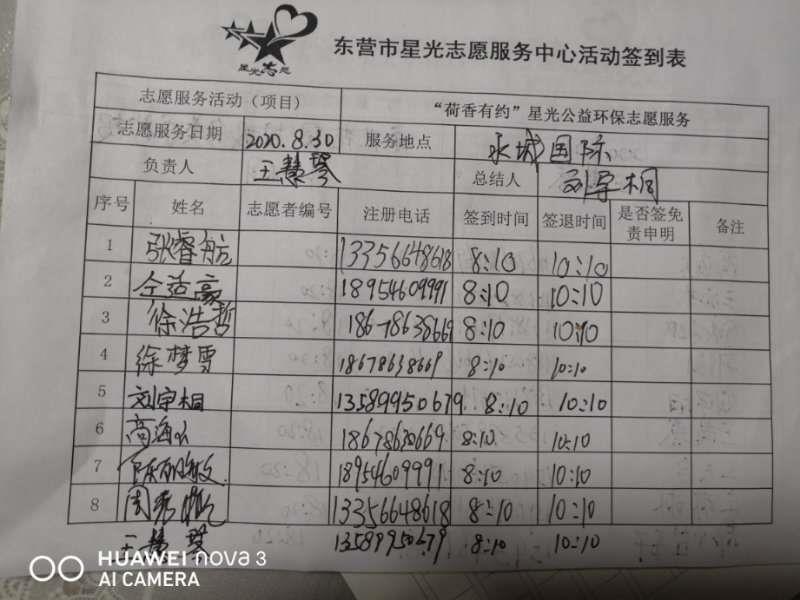 星光志愿
东营市星光志愿服务中心活动签到表
志愿服务活动（项目） “荷香有约”星光公益环保志愿服务
志愿服务日期 2020.8.30 服务地点 水城国际
负责人 王慧琴 总结人 刘宇桐
序号 姓名 志愿者编号 注册电话 签到时间 签退时间 是否签免责申明 备注
1 张睿航 13356648618 8:10 10:10
2 仝适豪 18954609991 8:10 10:10
3 徐浩哲 18678638669 8:10 10:10
4 徐梦雪 18678638669 8:10 10:10
5 刘宇桐 13589950679 8:10 10:10
6 高海 18678630669 8:10 10:10
7 18954609991 8:10 10:10
8 周秀 13356648618 8:10 10:10
王慧琴 13589950679 8:10 10:10
HUAWEI nova 3
AI CAMERA